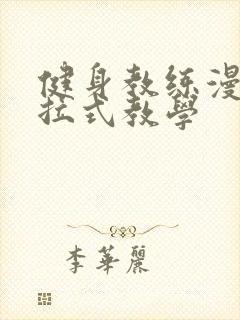 健身教练漫
拉式教學
李華麗